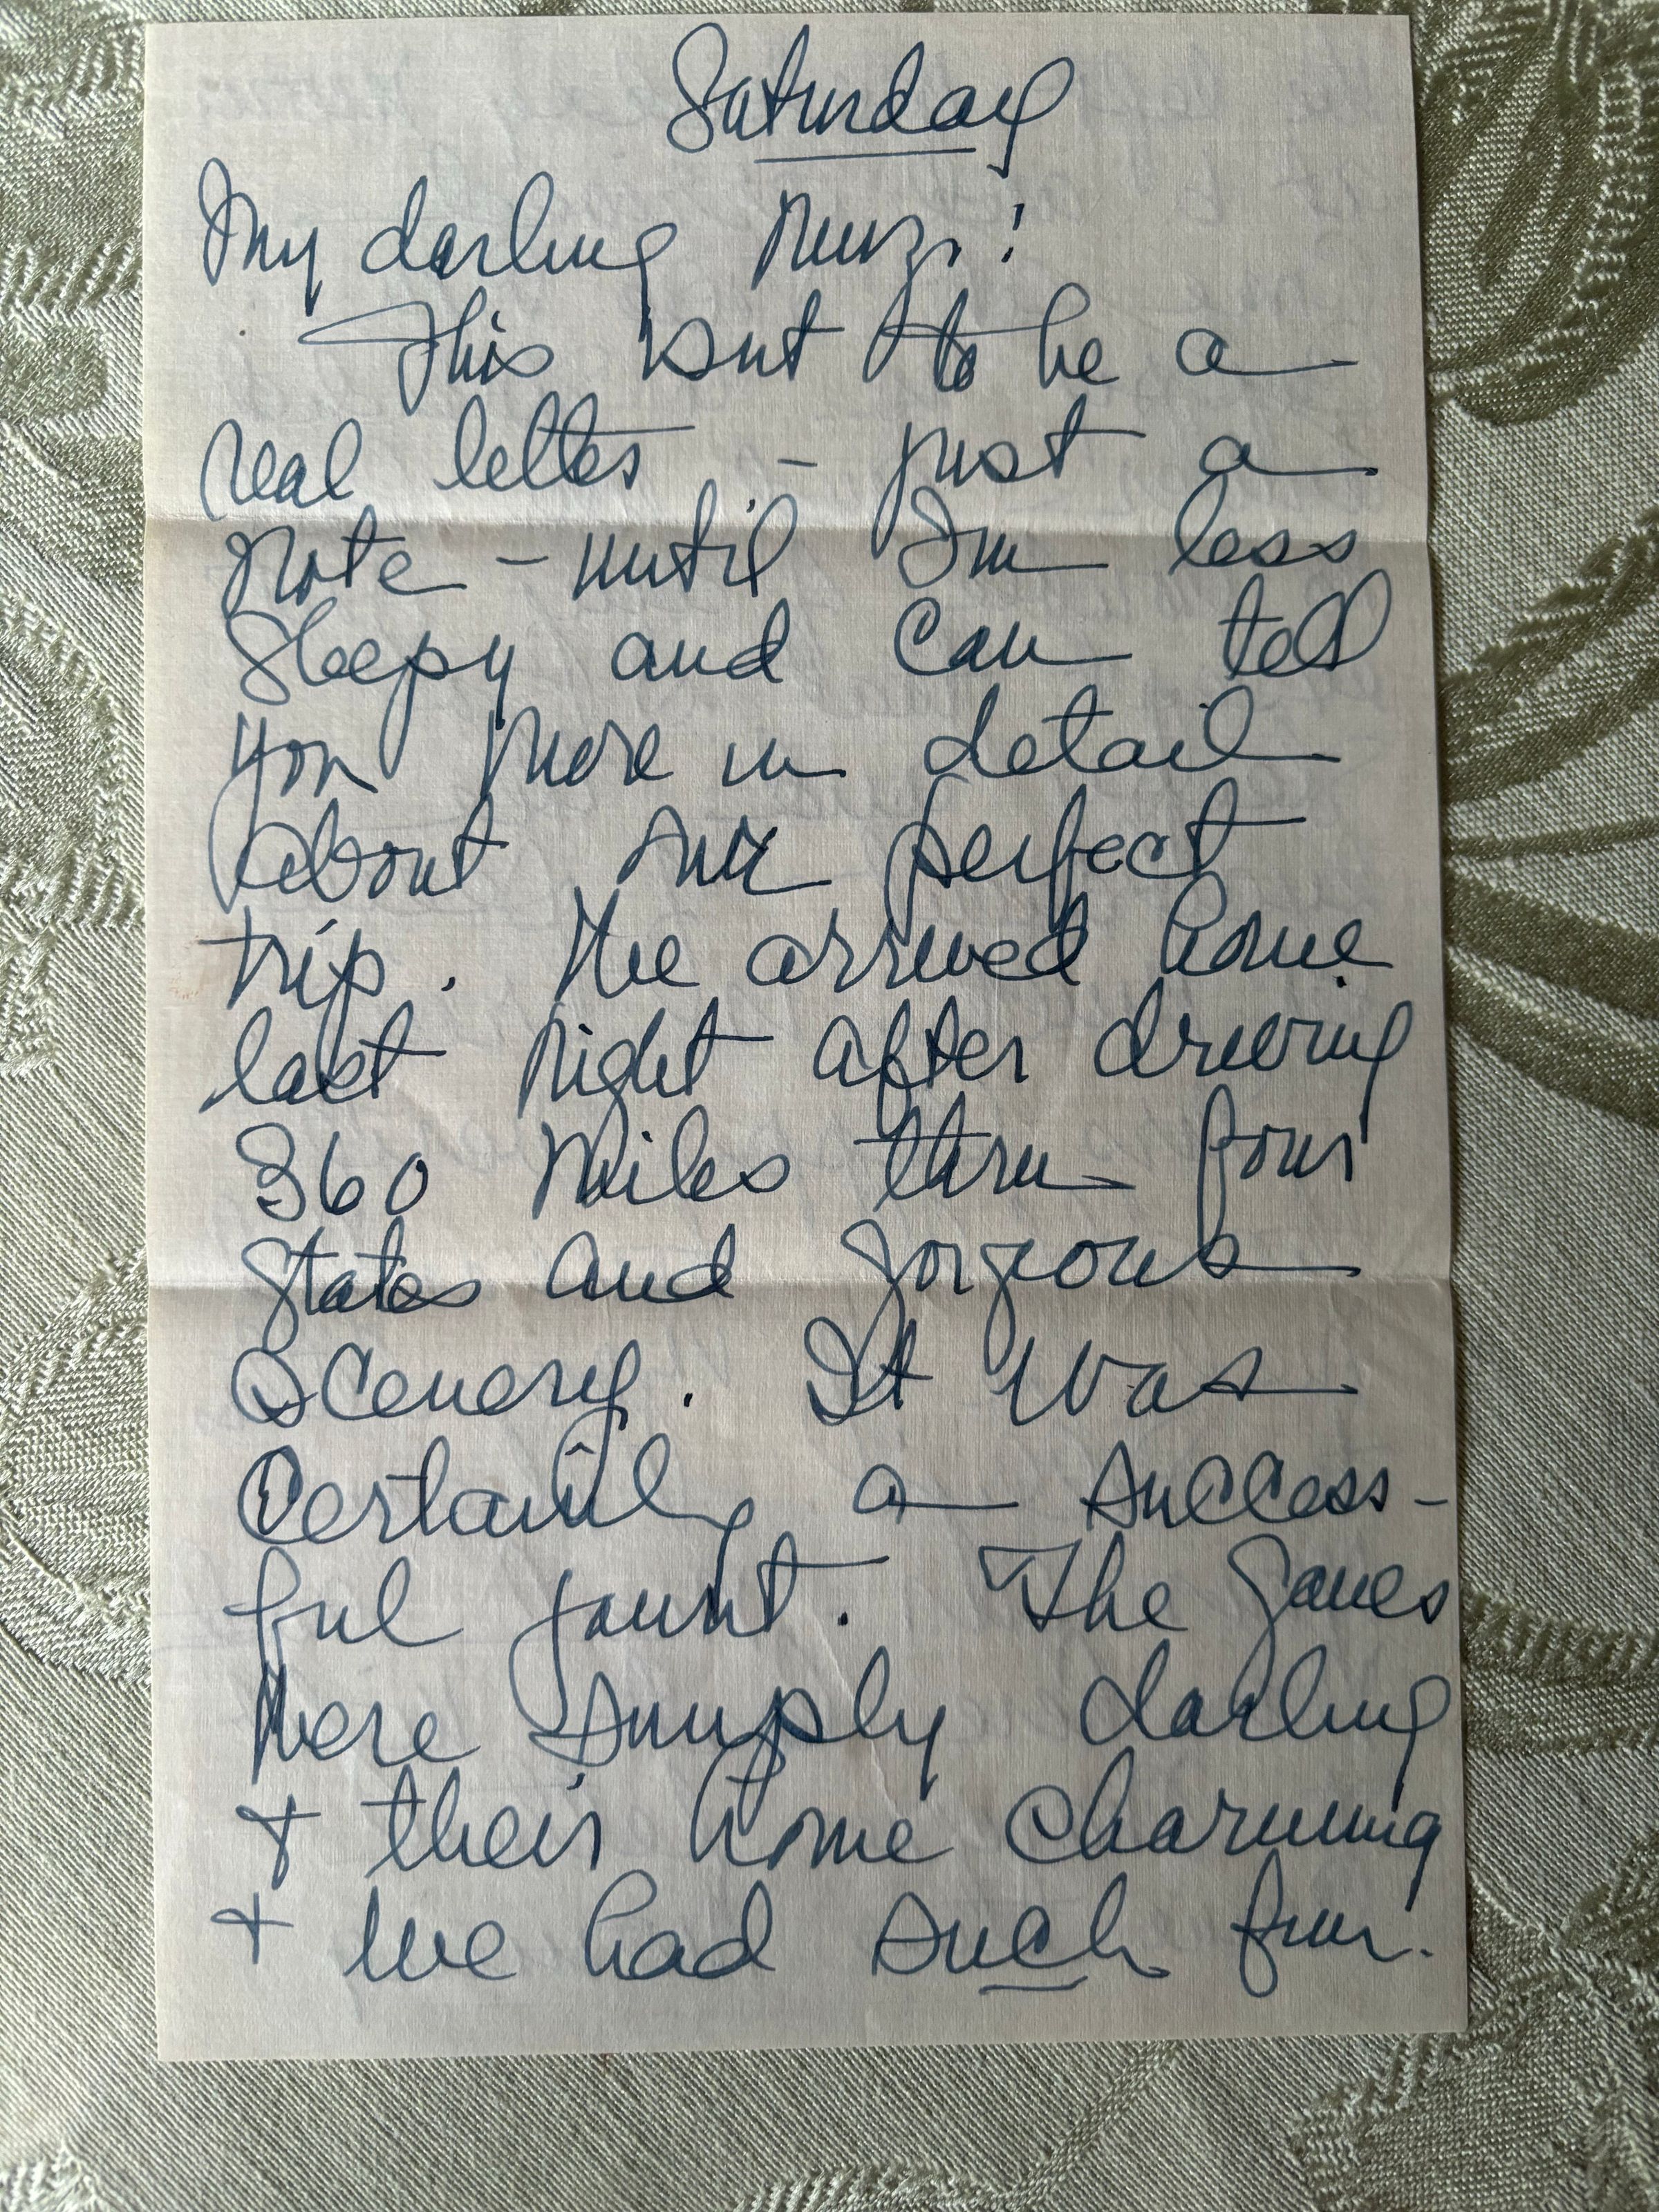 Saturday
My darling
This isnt to be a
real letter - just a
note - until I'm less
sleepy and can tell
you more in detail
about our perfect
trip. We arrived home
last night after driving
360 miles thru four
states and gorgeous
scenery. It was
certainly a success-
ful jaunt. The
were simply darling
+ their home charming
+ we had such fun.